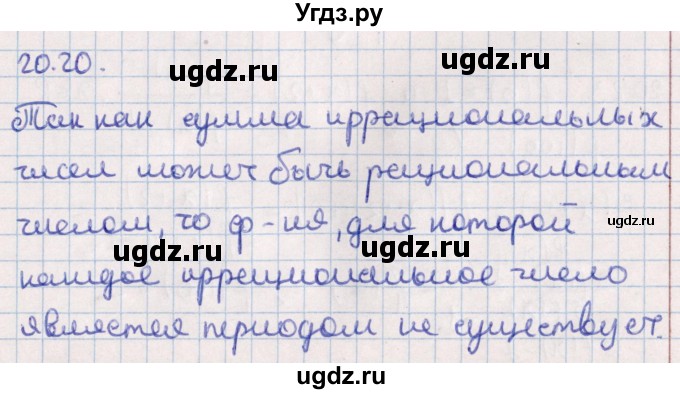 Угдз.ру
20.20.
ugdz.ru ugdz.ru
Так как сумма иррациональных
чисел может быть рациональным
числом, то ф-ия, для которой
ugdz.ru
ugdz.ru ugdz.ru
каждое иррациональное число
является периодом не существует.
ugdz.ru